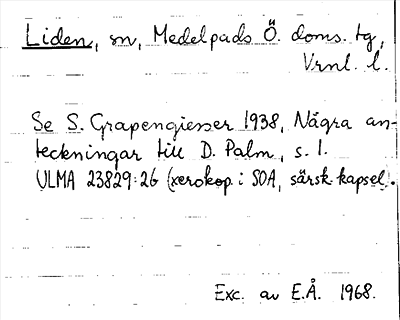 Liden, sn, Medelpads Ö. doms. tg,
Vrnl. l.
Se S. Grapengiesser 1938, Några an-
teckningar till D. Palm, s. 1.
ULMA 23829:26 (xerokop. i SOA, särsk. kapsel).
Exc. av E.Å. 1968.